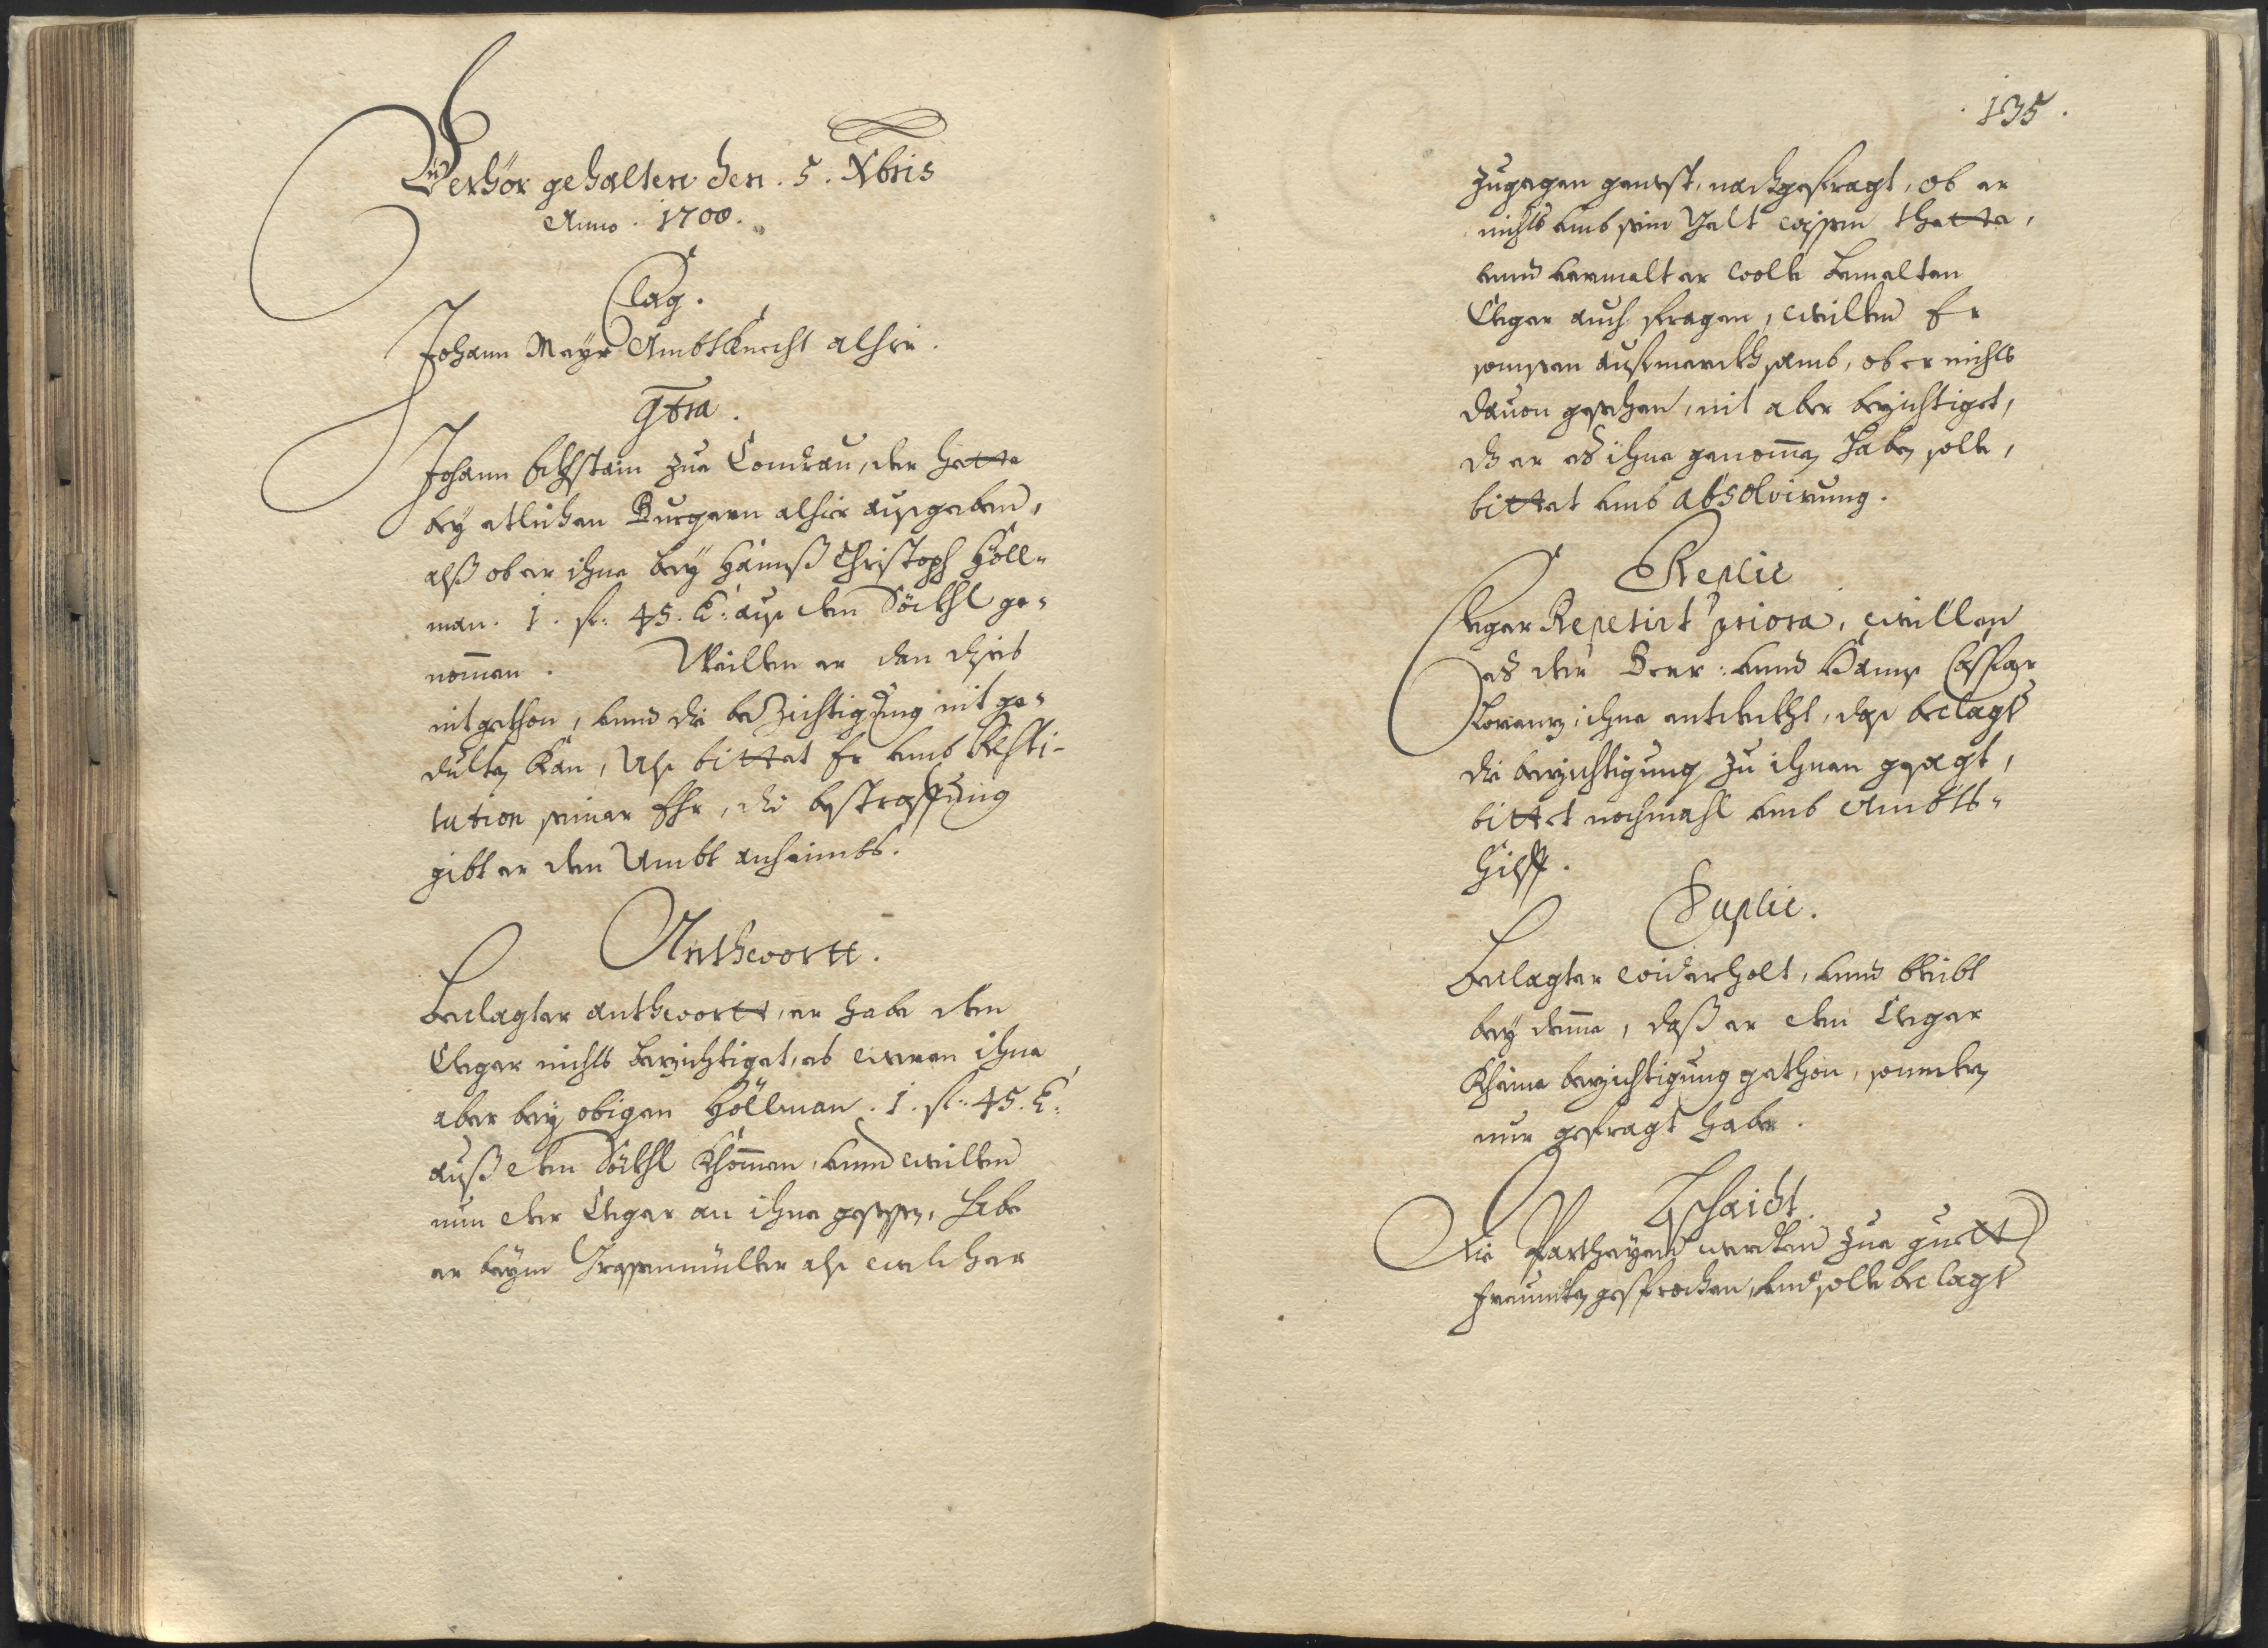 Verhör gehalten den . 5 . Xbris
Anno . 1700 .
Clag .
Johann Mayr Ambtknecht alhie .
Contra .
Johann zue Tondrau, der hette
bey etlichen Burgern alhier ausgeben,
alß ob er ihne bey Hannß Christoph Höll=
man . 1 . fl: 45 . x: aus dem Söckhl ge=
nommen . Weillen er den dies
nit gethon, unnd die beZichtigung nit ge=
dulten kan, Als bittet Er umb Resti-
tution seiner Ehr, die bestraffung
gibt er dem Ambt anheimbs .
Antheortt .
Beclagter antheortt, er habe dem
Cleger nichts bezichtiget, es weren ihne
aber bey obigen Höllman . 1 . fl: 45 . x:
auß dem Söckhl khommen, unnd weillen
nun der Cleger an ihne gesessen, habe
er beym müller als welcher
. 135 .
zugegen gewest, nachgefragt, ob er
nichts umb sein Gelt wissen thette,
unnd vermelt er wolle bemelten
Cleger auch fragen, weillen Er
aufmerckhsamb, ob er nichts
dauon gesehen, nit aber bezichtiget,
dz er es ihne genommen haben solle,
bittet umb absolvirung .
Replic
Cleger Repetirt priora, weillen
es der Beer: unnd Hanns Caspar
Lorenz, ihne entdeckht, das beclagt
die bezichtigung zu ihnen gesagt,
bittet nochmahl umb Ambts=
hilff .
Duplic .
Beclagter widerholt, unnd bleibt
bey deme, daß er dem Cleger
kheine bezichtigung gethon, sonndern
nur gefragt habe .
Bschaidt .
Die Partheyen werden zue guett
freundten gesprochen, und solle beclagt